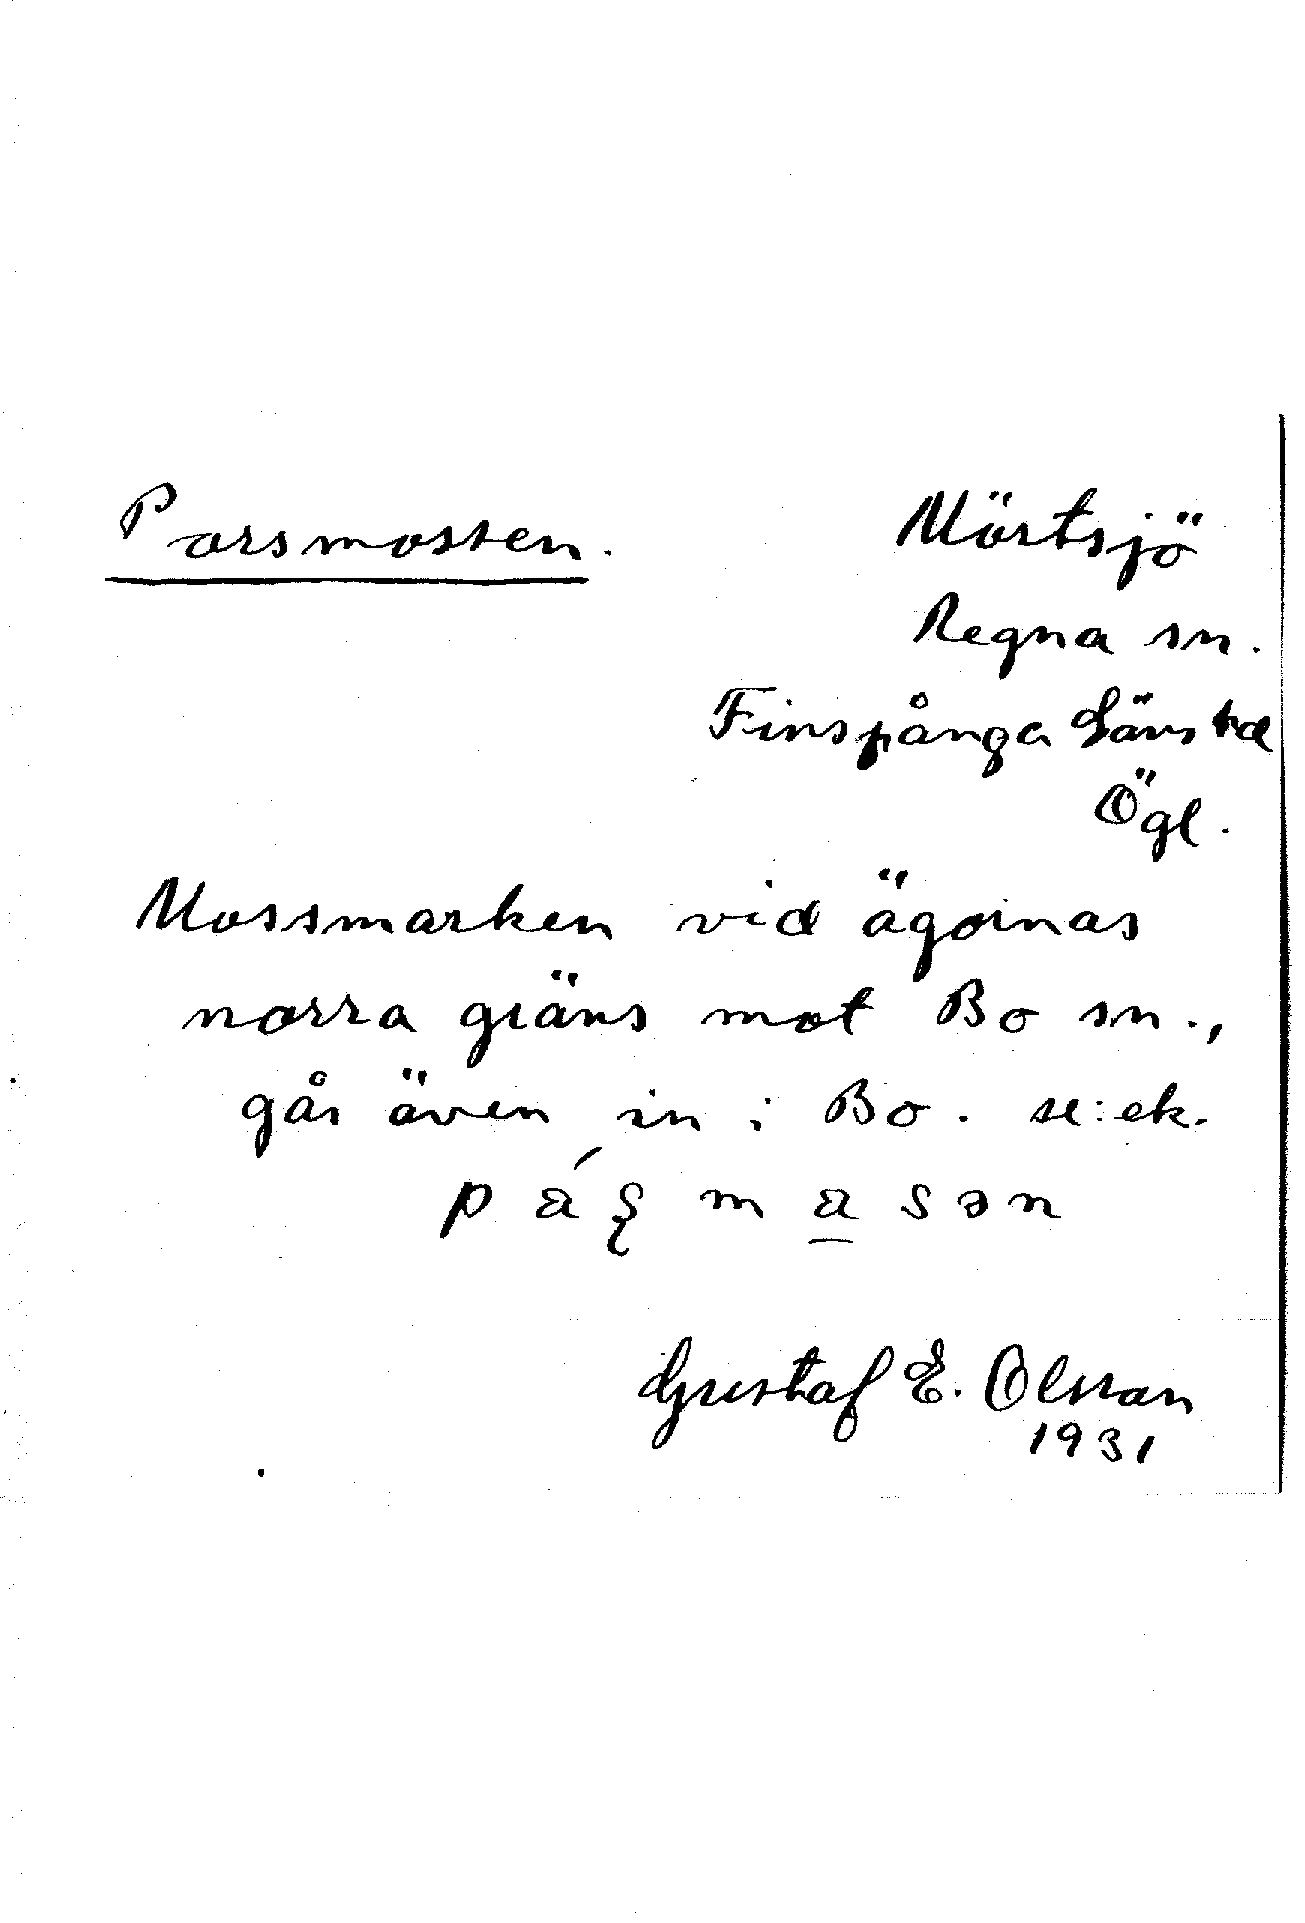 Porsmossen.
Mörtsjö
Regna sn.
Finspånga Läns hd
Ögl.
Mossmarken vid ägornas
norra gräns mot Bo sn.,
går även in i Bo. se: ek.
Gustaf E. Olsson
1931